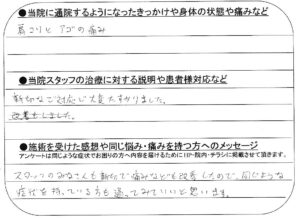 ●当院に通院するようになったきっかけや身体の状態や痛みなど
肩こりとアゴの痛み
●当院スタッフの治療に対する説明や患者様対応など
親切なご対応で大変たすかりました。
改善しました。
●施術を受けた感想や同じ悩み・痛みを持つ方へのメッセージ
アンケートは同じような症状でお困りの方へ内容を届けるためにHP・院内・チラシに掲載させて頂きます。
スタッフのみなさんも親切で痛みなども改善したので、同じような
症状を持っている方も通ってみていいと思います。